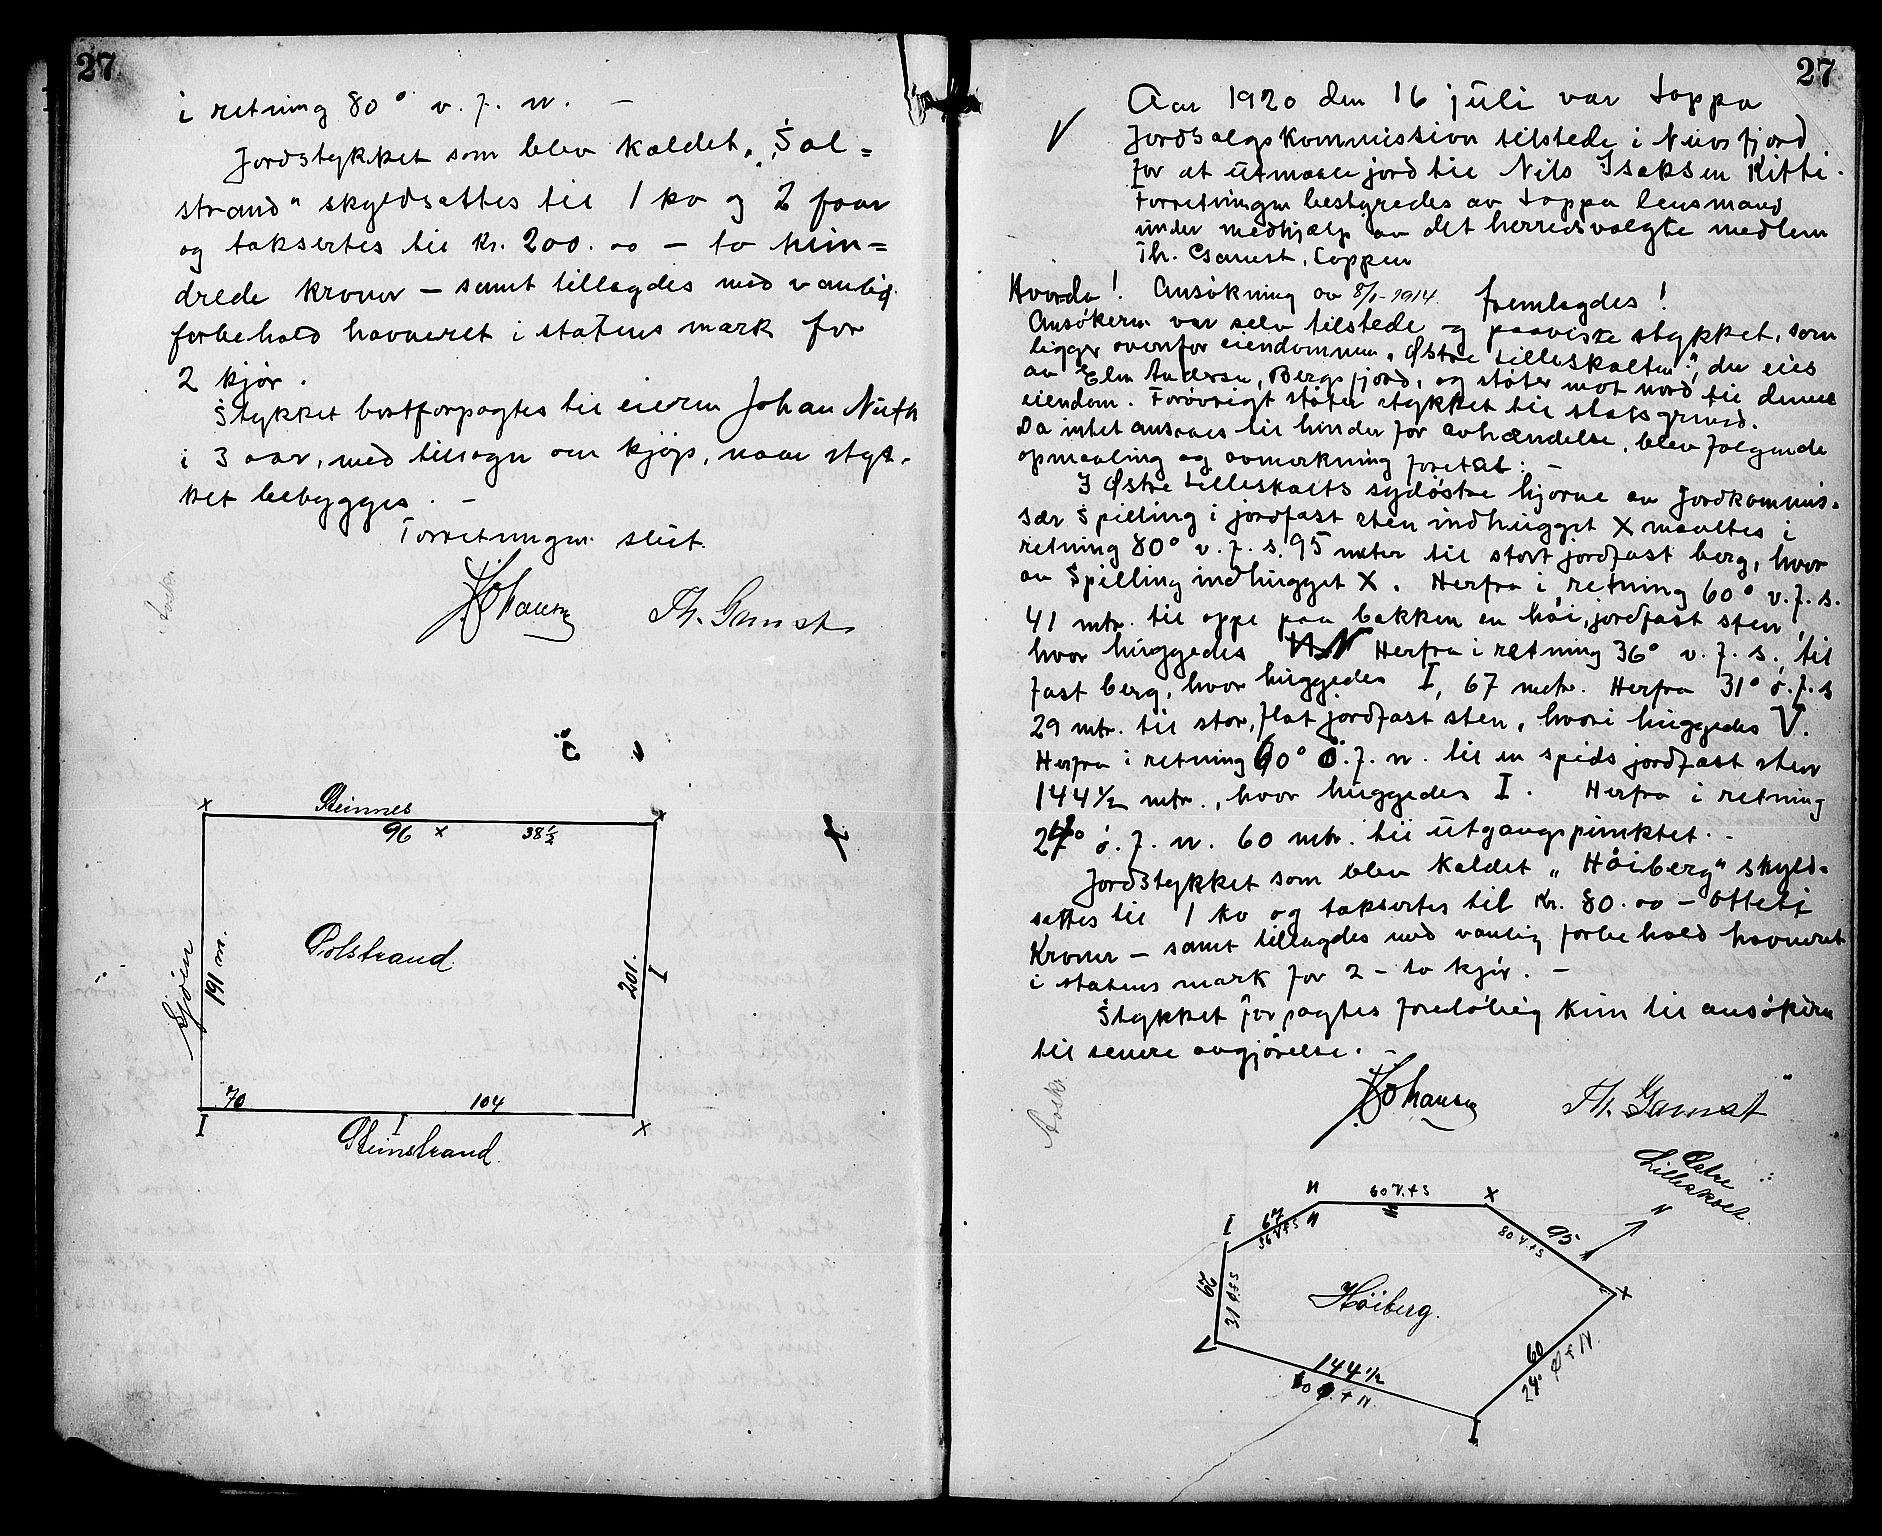 27
i retning 80° v. f. n. –
Jordstykket som blev kaldet „Sol=
strand" skyldsattes til 1 ko og 2 faar
og taksertes til kr. 200.00 – to hun=
drede kroner – samt tillagdes med vanlig
forbehold havneret i statens mark for
2 kjør.
Stykket bortforpagtes til eieren Johan Nuth
i 3 aar, med tilsagn om kjøp, naar styk-
ket bebygges. –
Forretningen slut.
Johansen Th. Gamst
Avskr.
x Steinnes x
96 x 38½
Sjøen
191 m.
Solstrand
201.
I
70 104
I I x
Steinstrand
27
V
Aar 1920 den 16 juli var Loppa
Jordsalgskommission tilstede i Nuvsfjord
for at utmaale jord til Nils Isaksen Kitti.
Forretningen bestyredes av Loppa lensmand
under medhjælp av det herredsvalgte medlem
Th. Gamst, Loppen
Hvorda! Ansøkning av 8/1-1914. fremlagdes!
Ansøkeren var selv tilstede og paaviste stykket, som
ligger ovenfor eiendommen „Østre Lilleskalten", der eies
av Elen Andersen, Bergsfjord, og støter mot nord til denne
eiendom. Forøvrigt støter stykket til statsgrund.
Da intet ansaaes til hinder for avhændelse, blev følgende
opmaaling og avmerkning foretat: –
I Østre Lilleskalts sydøstre hjørne av Jordkommis-
sær Spilling i jordfast sten indhugget X maaltes i
retning 80° v. f. s. 95 meter til stort jordfast berg, hvor
av Spilling indhugget X. Herfra i retning 60° v. f. s.
41 mtr. til oppe paa bakken en høi, jordfast sten,
hvor huggedes N Herfra i retning 36° v. f. s., til
fast berg, hvor huggedes I, 67 metr. Herfra 31° ø. f. s
29 mtr. til stor, flat jordfast sten, hvori huggedes V.
Herfra i retning 60° ø. f. n. til en spids jordfast sten
144½ mtr., hvor huggedes I. Herfra i retning
24° ø. f. n. 60 mtr. til utgangspunktet. –
Jordstykket som blev kaldet „Høiberg" skyld-
sattes til 1 ko og taksertes til kr. 80.00 – otteti
Kroner – samt tillagdes med vanlig forbehold havneret
i statens mark for 2 – to kjør. –
Stykket forpagtes foreløbig kun til ansøkeren
til senere avgjørelse. –
Avskr.
Johansen Th. Gamst
Østre
Lilleskalt.
N
60 v. f S x
I 67
36 V f S
80 v f S 95
31 ø f S
Høiberg.
x
V
144½
60 ø. f N.
60
24° ø f N.
I